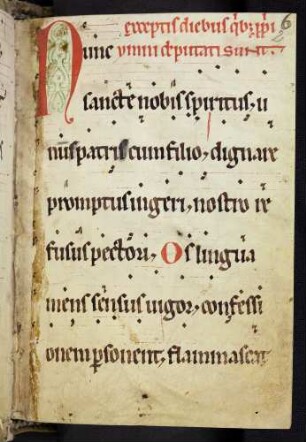 exceptis diebus qbz ppi
Nunc ymni deputati sunt
6
sancte nobis spiritus, u
nus patris cum filio, dignare
promptus ingeri, nostro re
fusus pectori, Os lingua
mens sensus uigor, confessi
onem psonent, flammascat